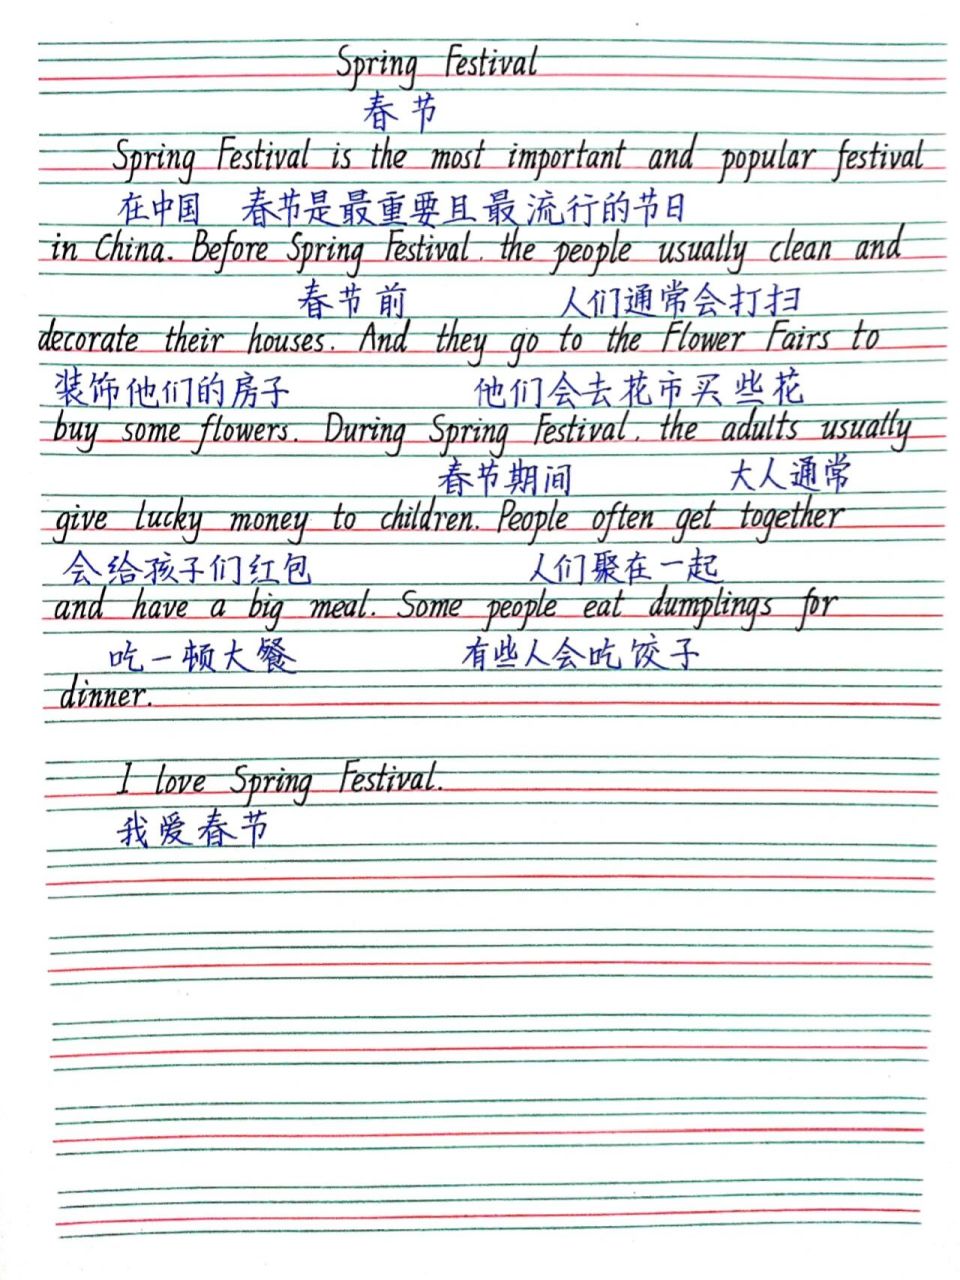 Spring Festival
春节
Spring Festival is the most important and popular festival
在中国 春节是最重要且最流行的节日
in China. Before Spring Festival, the people usually clean and
春节前 人们通常会打扫
decorate their houses. And they go to the Flower Fairs to
装饰他们的房子 他们会去花市买些花
buy some flowers. During Spring Festival, the adults usually
春节期间 大人通常
give lucky money to children. People often get together
会给孩子们红包 人们聚在一起
and have a big meal. Some people eat dumplings for
吃一顿大餐 有些人会吃饺子
dinner.
I love Spring Festival.
我爱春节